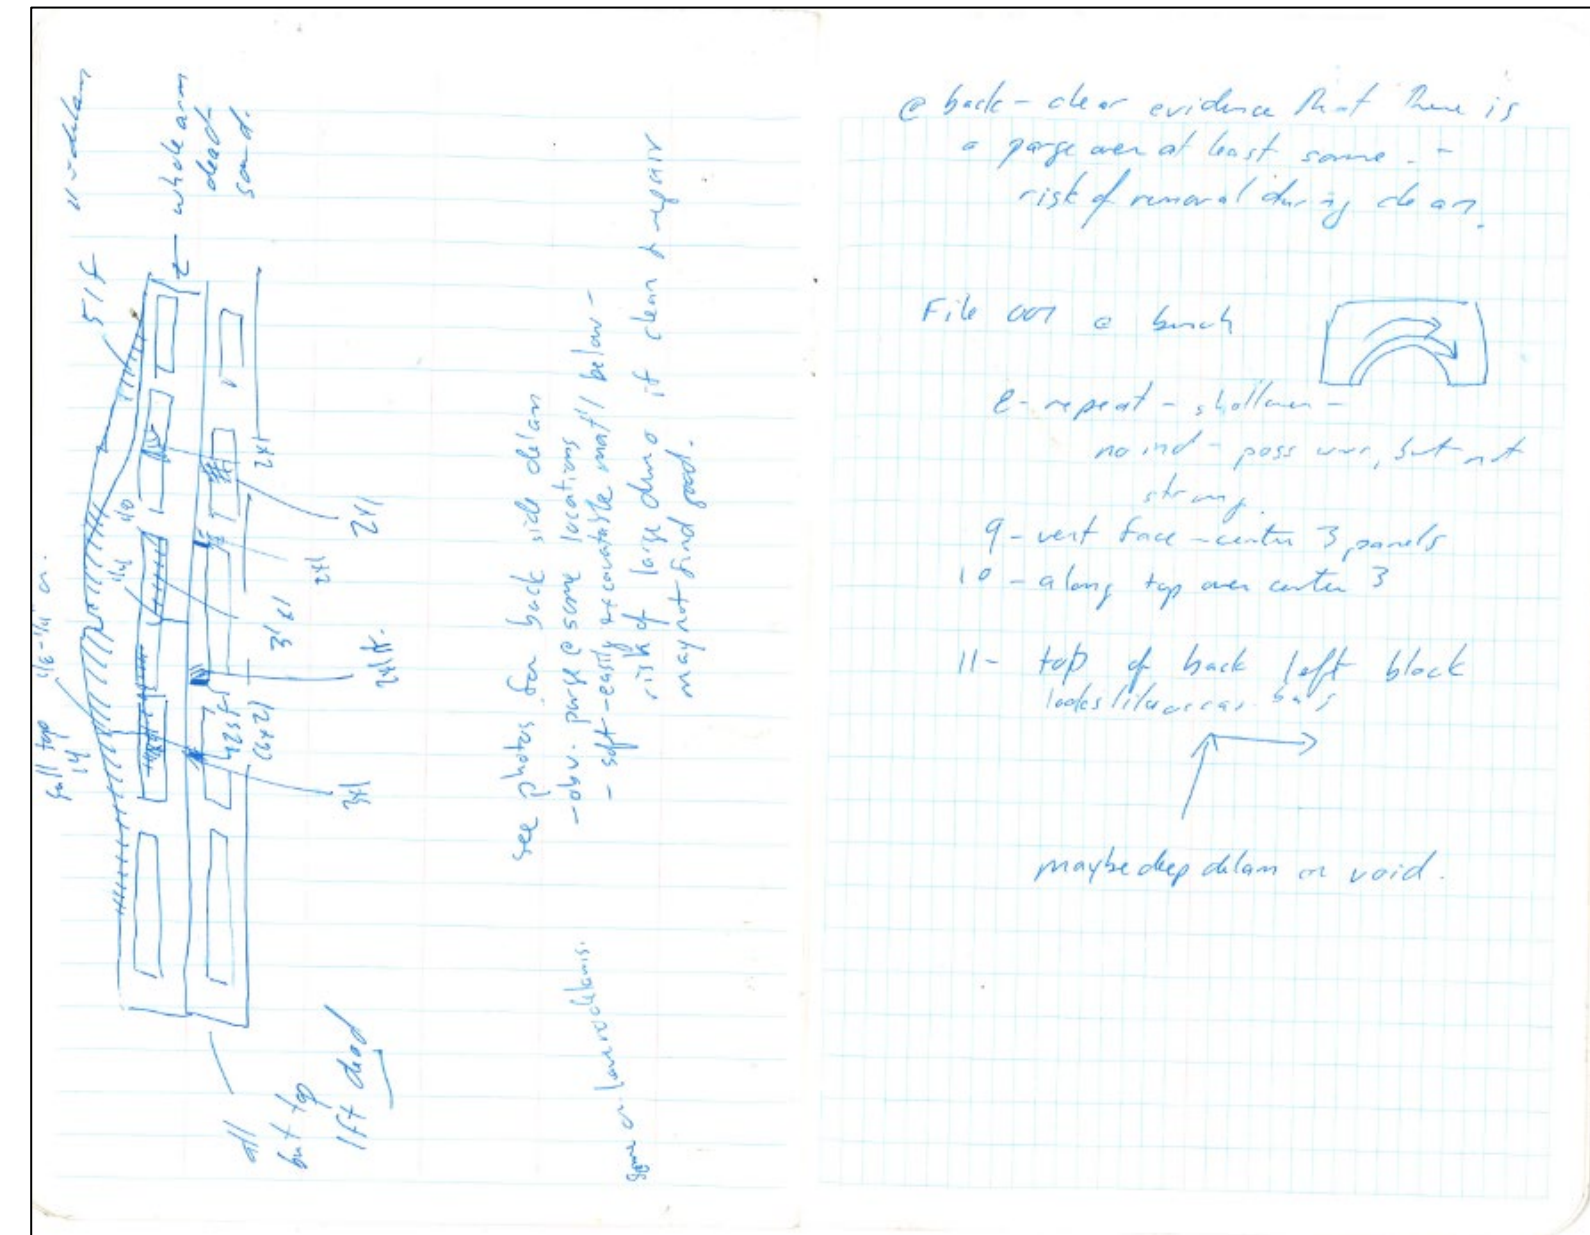 11 = delam
whole arm
dead
sound.
51 f
full top
14
2x1
2x1
2x1
3'x1
2x1 ft.
42sf
(6x2)
3x1
all
but top
1ft dead
see photos for back side delam
-obv. parge @ some locations
- soft - easily excavatable mat'l below -
risk of large dumo if clean & repair
may not find good.
some cr. found delams.
@ back - clear evidence that there is
a parge over at least some. -
risk of removal during clean.
File 007 @ bench
8 - repeat - shallower -
no ind - poss, but not
strong.
9 - vert face - center 3 panels
10 - along top over center 3
11 - top of back left block
looks like bars
maybe deep delam or void.